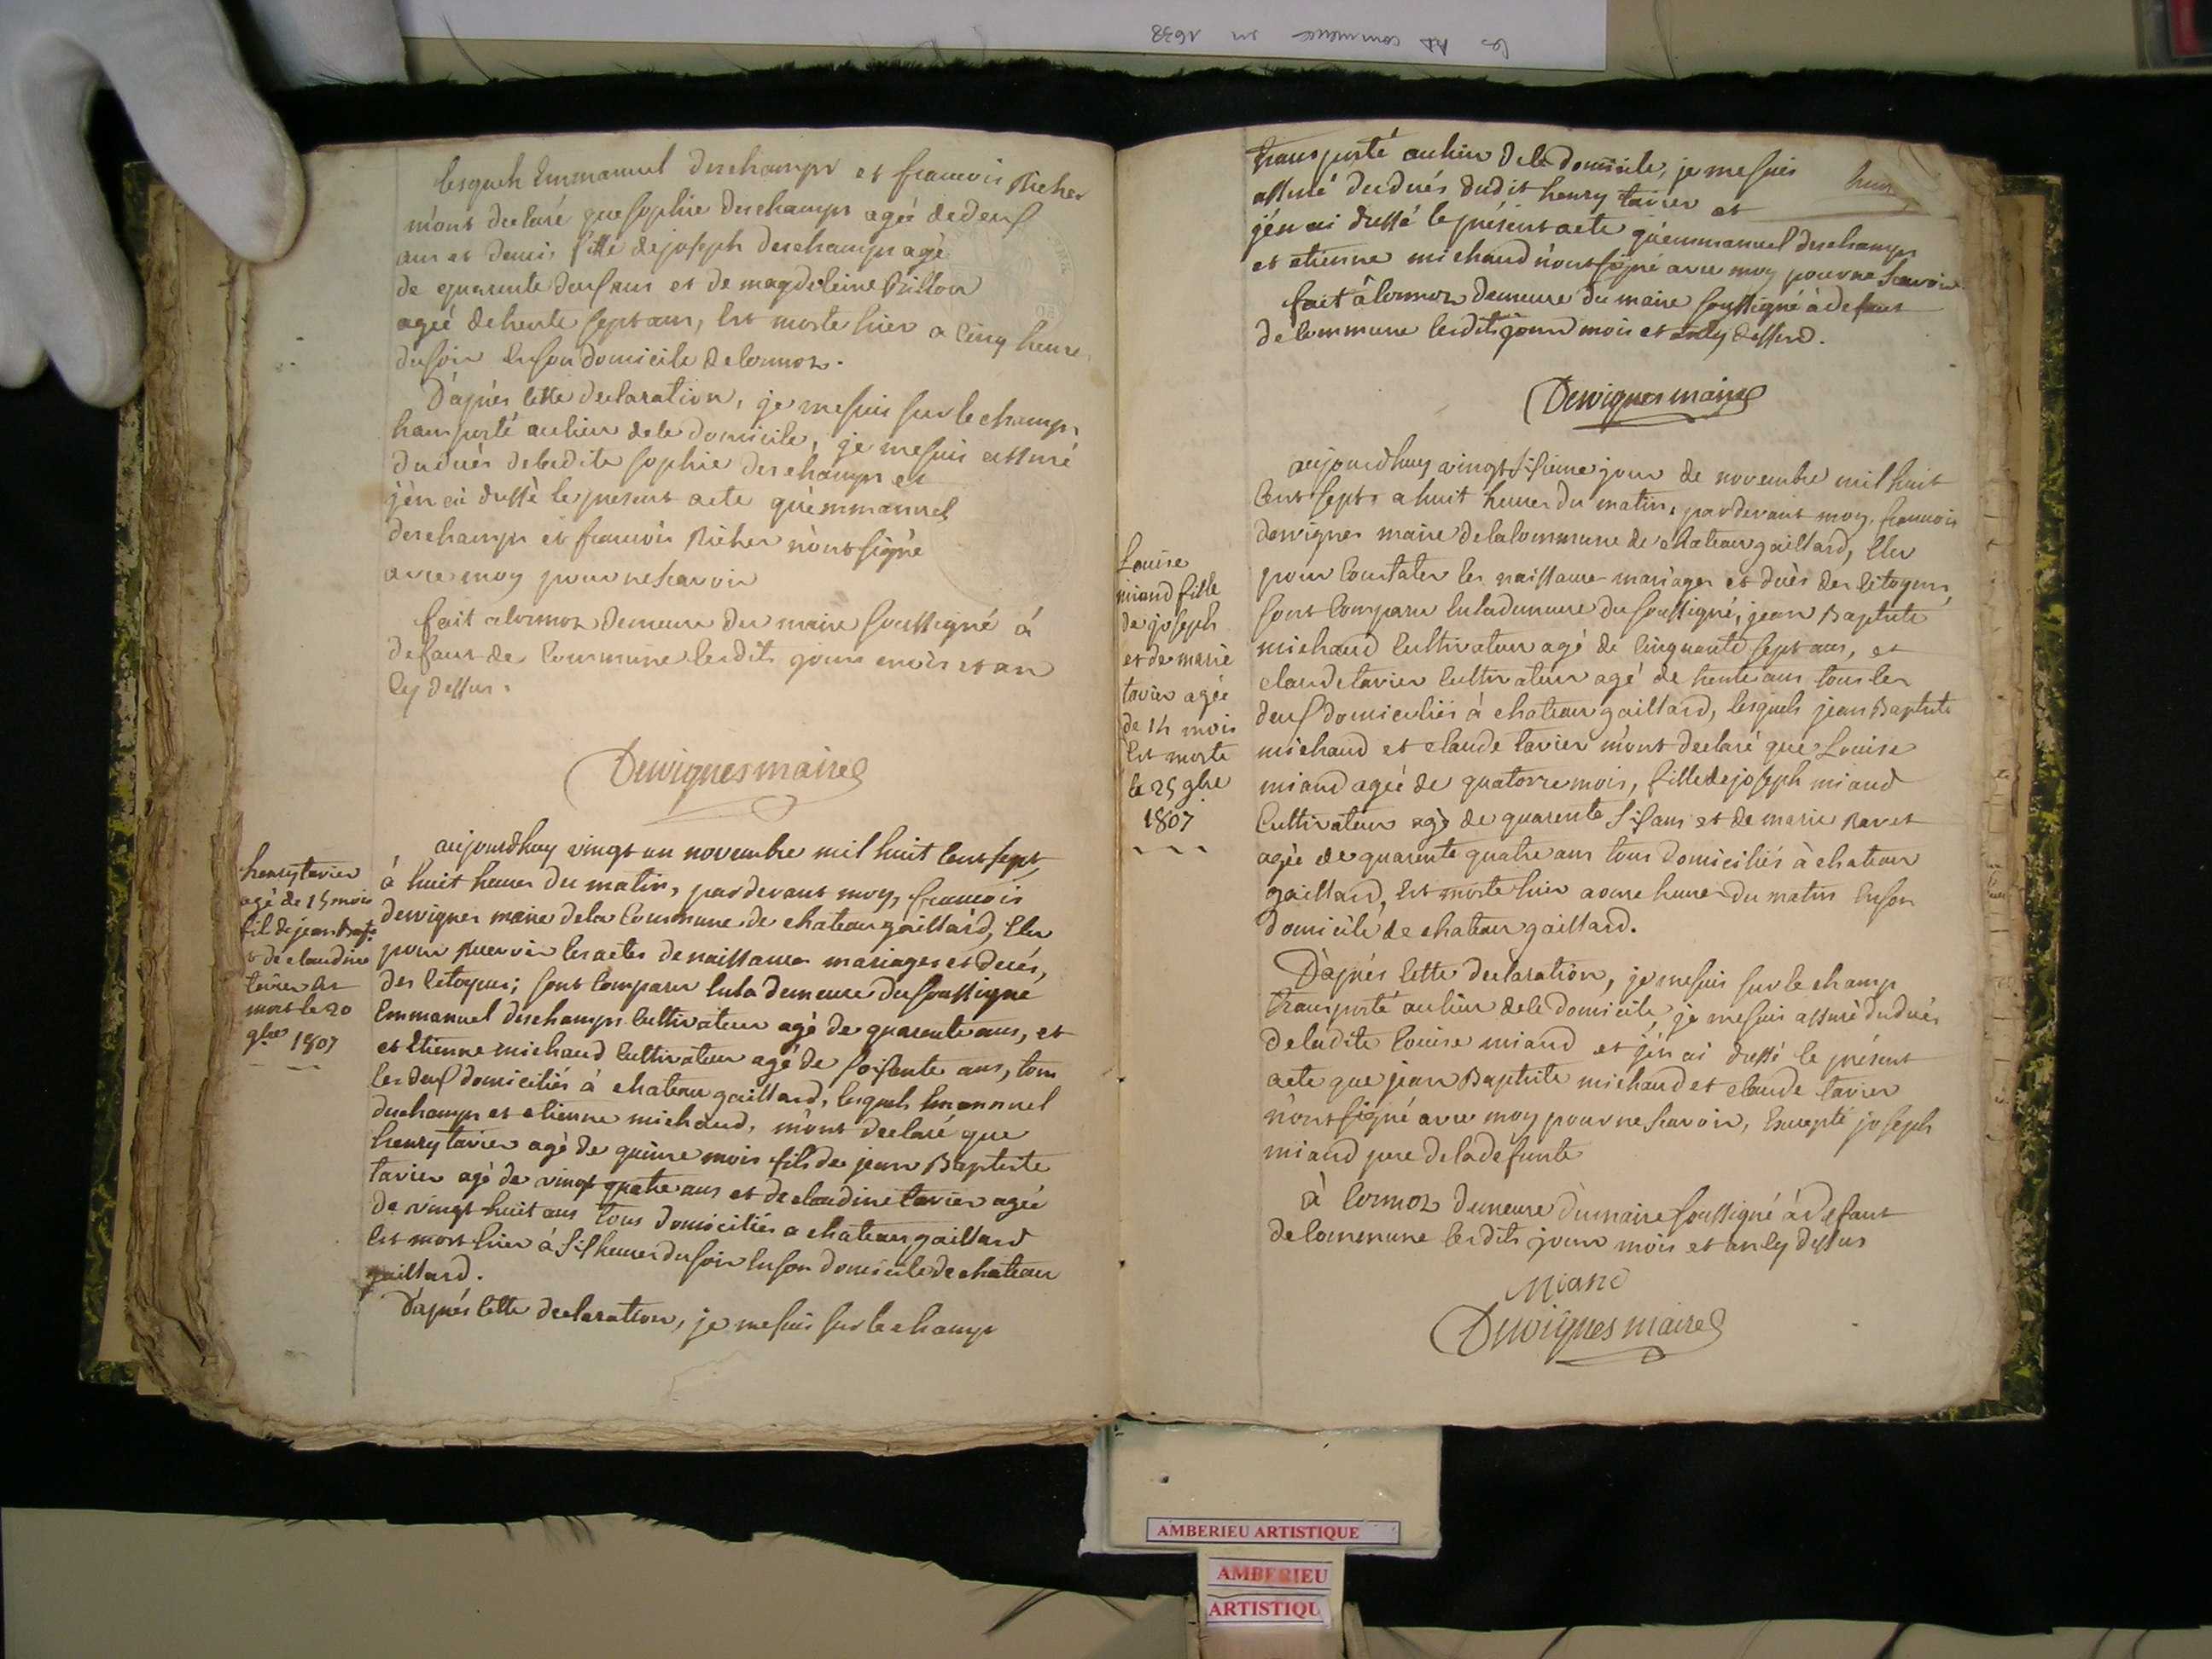 les commence en 1638
lesquels Emmanuel deschamps et francois Richer
m'ont declaré que sophie deschamps agée de deux
ans et demi, fille de joseph deschamps agé
de quarente deux ans et de magdeleine
agée de trente sept ans, Est morte hier a Cinq heure
du soir En son domicile de Cormoz.
D'après Cette declaration, je me suis sur le champ
transporté au lieu de le domicile, je me suis assuré
du ducès de ladite sophie deschamps et
j'en ai dressé le present acte qu'emmanuel
deschamps et francois Richer n'ont signé
avec moy pour ne scavoir
fait a Cormoz demeure du maire soussigné à
defaut de Commune lesdits jour mois et an
Cy dessus.
Dervignes maire
henry tavier
agé de 15 mois
fil de jean Bapte
& de claudine
tavier Est
mort le 20
9bre 1807
aujourdhuy vingt un novembre mil huit Cent sept
à huit heures du matin, par devant moy, francois
dervignes maire de la Commune de chateau gaillard, Elu
pour recevoir les actes de naissances mariages et decès,
des Citoyens; sont Comparu En la demeure du soussigné
Emmanuel deschamps Cultivateur agé de quarente ans, et
et Etienne michaud Cultivateur agé de soixente ans, tous
les deux domiciliés à chateau gaillard, lesquels Emmanuel
deschamps et etienne michaud, m'ont declaré que
henry tavier agé de quinze mois fils de jean Baptiste
tavier agé de vingt quatre ans et de claudine tavier agée
de vingt huit ans tous domiciliés a chateau gaillard
Est mort hier à six heures du soir En son domicile de chateau
gaillard.
D'après Cette declaration, je me suis sur le champ
transporté au lieu de le domicile, je me suis
assuré du ducés dudit henry tavier et
j'en ai dressé le présent acte qu'emmanuel deschamps
et etienne michaud n'ont signé avec moy pour ne scavoir
fait à Cormoz demeure du maire soussigné à defaut
de Commune lesdits jour mois et an Cy dessus.
Dervignes maire
Louise
miand fille
de joseph
et de marie
tavier agée
de 14 mois
Est morte
le 25 9bre
1807
aujourdhuy vingt sixieme jour de novembre mil huit
Cent sept, a huit heures du matin, par devant moy, francois
dervignes maire de la Commune de chateau gaillard, Elu
pour Constater les naissances mariages et ducès des Citoyens,
sont Comparu En la demeure du soussigné, jean Baptiste
michaud Cultivateur agé de Cinquante sept ans, et
claude tavier Cultivateur agé de trente ans tous les
deux domiciliés à chateau gaillard, lesquels jean Baptiste
michaud et claude tavier m'ont declaré que Louise
miand agée de quatorze mois, fille de joseph miand
Cultivateur agé de quarente six ans et de marie Ravet
agée de quarente quatre ans tous domiciliés à chateau
gaillard, Est morte hier a onze heures du matin En son
domicile de chateau gaillard.
D'après Cette declaration, je me suis sur le champ
transporté au lieu de le domicile, je me suis assuré du ducés
de ladite Louise miand et j'en ai dressé le présent
acte que jean Baptiste michaud et claude tavier
n'ont signé avec moy pour ne scavoir, Excepté joseph
miand pere de la defunte
à Cormoz demeure du maire soussigné à defaut
de Commune lesdits jour mois et an Cy dessus
Miand
Dervignes maire
AMBERIEU ARTISTIQUE
AMBERIEU
ARTISTIQU